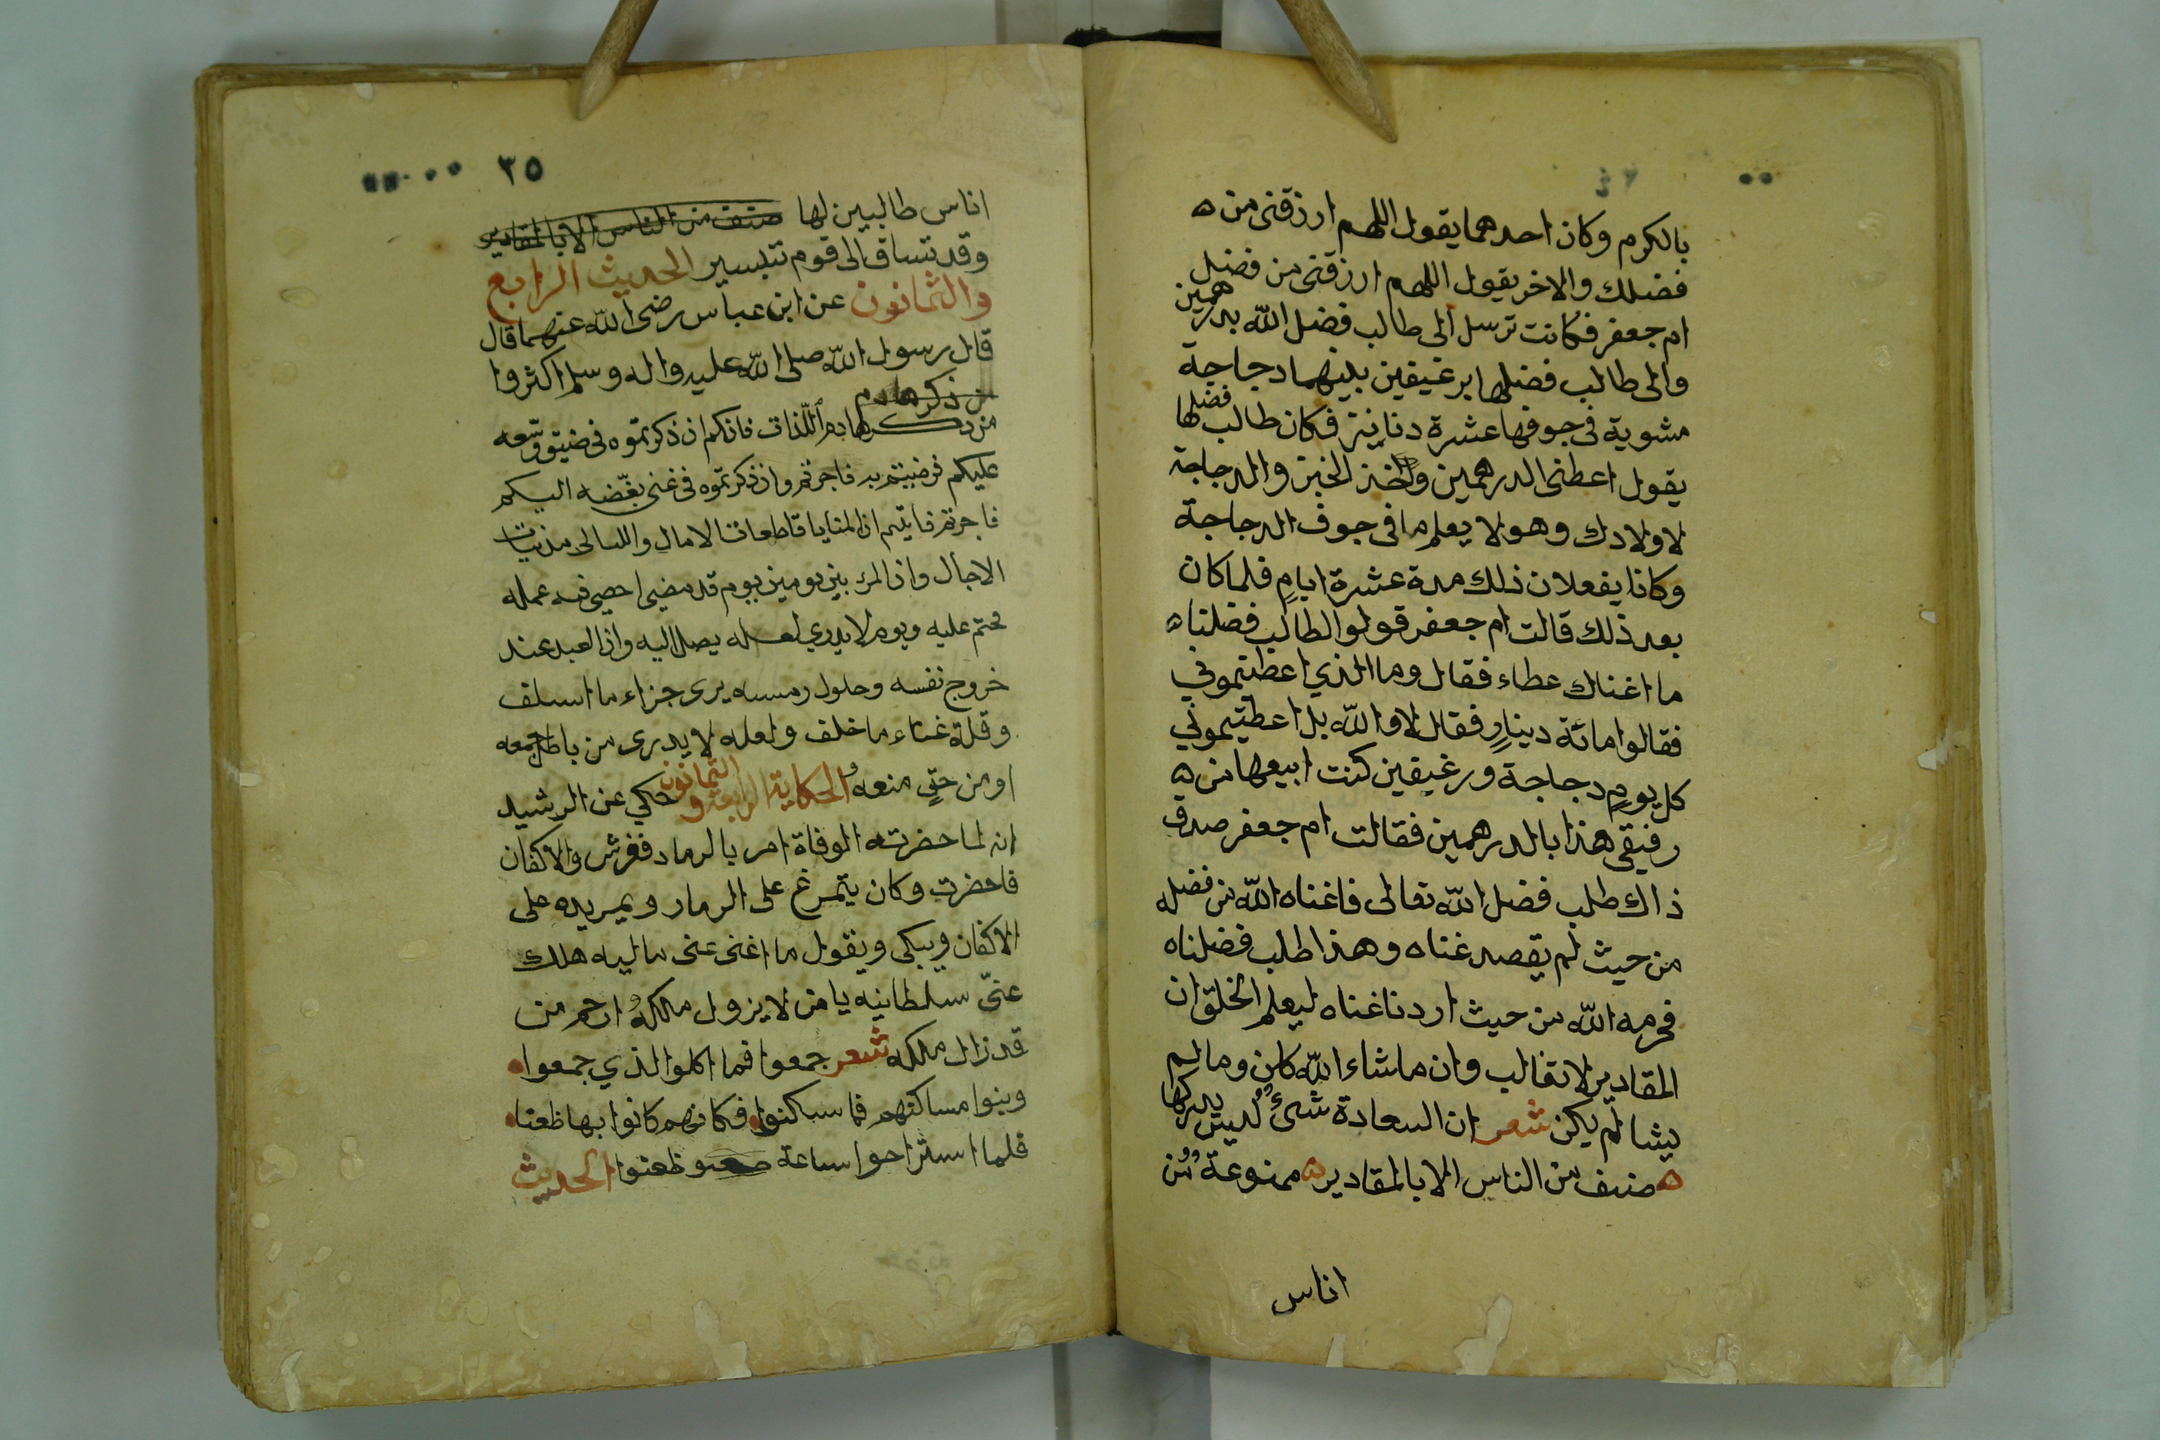 بالكرم وكان احدهما يقول اللهم ارزقنى من ه
فضلك والاخر يقول اللهم ارزقنى من فضل
ام جعفر فكانت ترسل الى طالب فضل الله بدرهمين
والى طالب فضلها برغيفين بينهما دجاجة
مشوية فى جوفها عشرة دنانير فكان طالب فضلها
يقول اعطنى الدرهمين وخذ الخبز والدجاجة
لاولادك وهو لا يعلم ما فى جوف الدجاجة
وكانا يفعلان ذلك مدة عشرة ايام فلما كان
بعد ذلك قالت ام جعفر قولوا لطالب فضلنا ه
ما اغناك عطاء فقال وما الذي اعطيتموني
فقالوا مائة دينار فقال لا والله بل اعطيتموني
كل يوم دجاجة ورغيفين كنت ابيعها من ه
رفيقى هذا بالدرهمين فقالت ام جعفر صدق
ذاك طلب فضل الله تعالى فاغناه الله من فضله
من حيث لم يقصد غناه وهذا طلب فضلنا ه
فحرمه الله من حيث اردنا غناه ليعلم الخلق ان
المقادير لا تغالب وان ما شاء الله كان وما لم
يشا لم يكن شعر ان السعادة شئ ليس يدركها
ه صنف من الناس الا بالمقادير ه ممنوعة من
اناس
٣٥
اناس طالبين لها صنف من الناس الا بالمقادير
وقد تساق الى قوم تتيسير الحديث الرابع
والثمانون عن ابن عباس رضى الله عنهما قال
قال رسول الله صلى الله عليه واله وسلم اكثروا
من ذكر هادم
من ذكر هادم اللذات فانكم ان ذكرتموه فى ضيق وسّعه
عليكم فرضيتم به فاجرتم وان ذكرتموه فى غنى بغّضه اليكم
فاجرتم فاثبتم ان المنايا قاطعات الامال والليالى مدنيات
الاجال وان المرء بين يومين يوم قد مضى احصى فيه عمله
فختم عليه ويوم لا يدري لعله يصل اليه وان العبد عند
خروج نفسه وحلول رمسه يرى جزاء ما اسلف
وقلة غناء ما خلف ولعله لا يدرى من باطل جمعه
او من حقٍ منعه الحكاية الرابعة والثمانون حكي عن الرشيد
انه لما حضرته الوفاة امر بالرماد ففرش والاكفان
فاحضرت وكان يتمرغ على الرماد ويمر يده على
الاكفان ويبكى ويقول ما اغنى عنى ماليه هلك
عنّى سلطانيه يا من لا يزول ملكه ارحم من
قد زال ملكه شعر جمعوا فما اكلوا الذي جمعوا
وبنوا مساكنهم فما سكنوا فكانهم كانوا بها ظعنا
فلما استراحوا ساعة ظعنوا الحديث